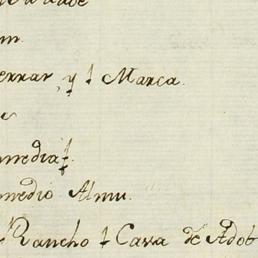 m.
errar, y 1 Marca.
media
medio Almu.
Rancho 1 Casa de Adob